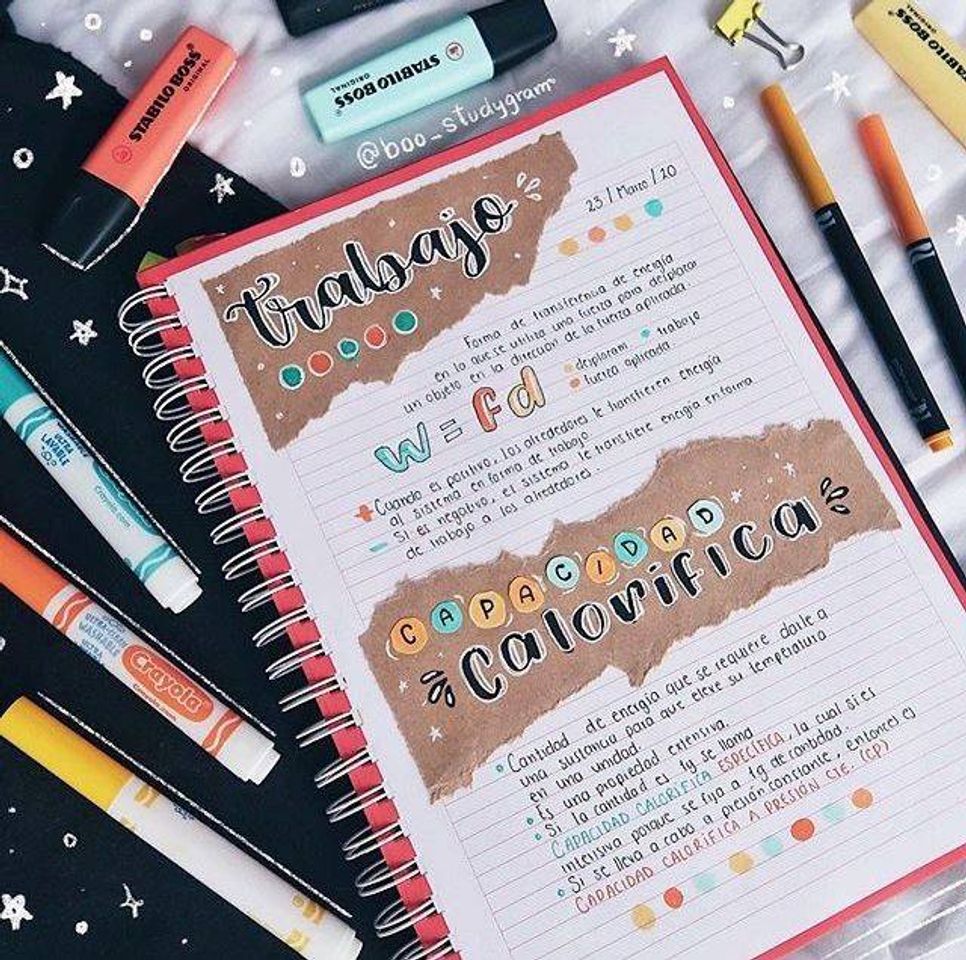 STABILO BOSS
ORIGINAL
STABILO BOSS
ORIGINAL
STABILO BOSS
ORIGINAL
@boo_studygram
trabajo
23 / Marzo / 20
Forma de transferencia de energía
en la que se utiliza una fuerza para desplazar
un objeto en la dirección de la fuerza aplicada.
W = fd
desplazam
trabajo
fuerza aplicada.
+ Cuando es positivo, los alrededores le transfieren energía
al sistema en forma de trabajo
- Si es negativo, el sistema le transfiere energía en forma
de trabajo a los alrededores.
CAPACIDAD
Calorífica
Cantidad de energía que se requiere darle a
una sustancia para que eleve su temperatura
en una unidad.
Es una propiedad extensiva.
Si la cantidad es 1g se llama
CAPACIDAD CALORÍFICA ESPECÍFICA, la cual si es
intensiva porque se fija a 1g de cantidad.
Si se lleva a cabo a presión constante, entonces es
CAPACIDAD CALORÍFICA A PRESIÓN CTE. (CP)
ULTRA
LAVABLE
Crayola.com
ULTRA-CLEAN
WASHABLE
ULTRA
Crayola
Crayola.com